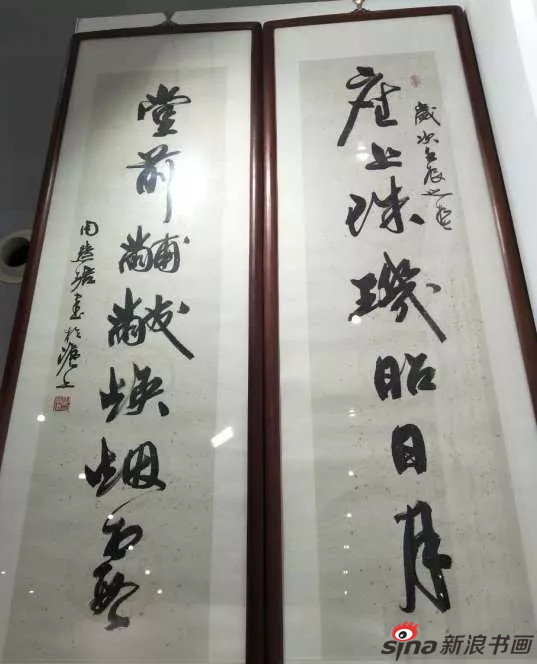 座上珠璣昭日月
歲次壬辰之
堂前黼黻煥烟霞
周書於滬上
sina新浪书画